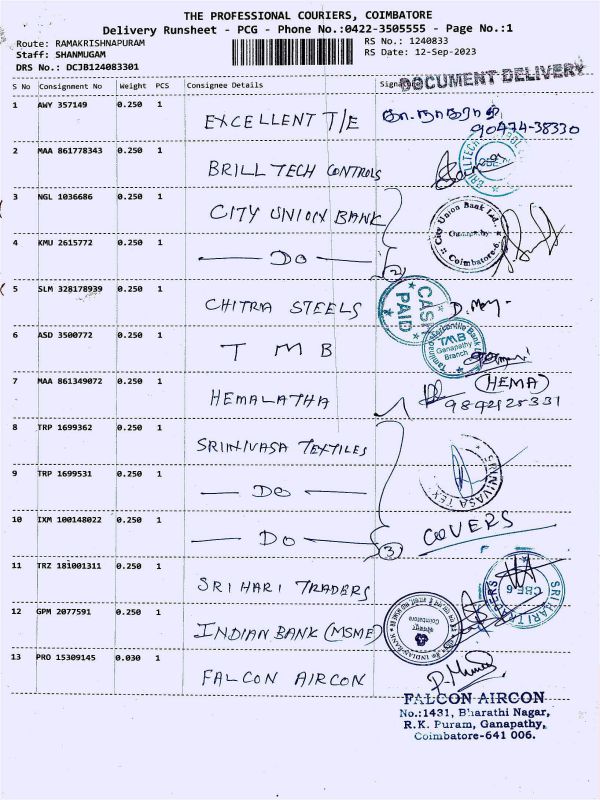 THE PROFESSIONAL COURIERS, COIMBATORE
Delivery Runsheet - PCG - Phone No.:0422-3505555 - Page No.:1
Route: RAMAKRISHNAPURAM RS No.: 1240833
Staff: SHANMUGAM RS Date: 12-Sep-2023
DRS No.: DCJB124083301
DOCUMENT DELIVERY
S No Consignment No Weight PCS Consignee Details Sign
1 AWY 357149 0.250 1 EXCELLENT T/E
90474-38330
2 MAA 861778343 0.250 1 BRILL TECH CONTROLS
3 NGL 1036686 0.250 1 CITY UNION BANK
City Union Bank Ltd. Ganapathy Coimbatore-6.
4 KMU 2615772 0.250 1 — DO — 2
5 SLM 328178939 0.250 1 CHITRA STEELS CASH PAID
6 ASD 3500772 0.250 1 T M B
TMB Ganapathy Branch
7 MAA 861349072 0.250 1 HEMALATHA (HEMA)
9892125331
8 TRP 1699362 0.250 1 SRINIVASA TEXTILES
9 TRP 1699531 0.250 1 — DO — SRINIVASA TEX
10 IXM 100148022 0.250 1 — DO — 3 COVERS
11 TRZ 181001311 0.250 1 SRI HARI TRADERS
SRI HARI TRADERS CBE-6
12 GPM 2077591 0.250 1 INDIAN BANK (MSME)
13 PRO 15309145 0.030 1 FALCON AIRCON
FALCON AIRCON
No.:1431, Bharathi Nagar,
R.K. Puram, Ganapathy,
Coimbatore-641 006.